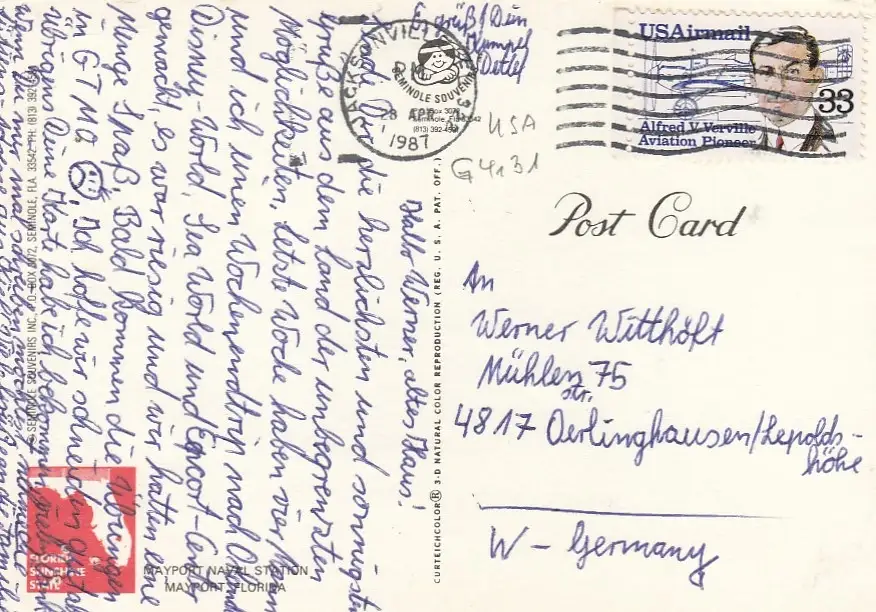 Hallo Werner, altes Haus!
sende Dir die herzlichsten und sonnigsten
Grüße aus dem Land der unbegrenzten
Möglichkeiten. Letzte Woche haben vier Mann
und ich einen Wochenendtrip nach
Disney-World, Sea World und Epcort-Center
gemacht, es war riesig und wir hatten eine
Menge Spaß. Bald kommen die Übungen
in GTMO, Ich hoffe wir schneiden gut ab
Übrigens Deine Karte habe ich bekommen,
Wenn du mir mal schreiben möchtest,
Es grüßt Dein
Kumpel
Detlef
JACKSONVILLE
28 APR
1987
SEMINOLE SOUVENIRS
P.O. Box 3072
Seminole, Fla. 33542
(813) 392-4551
USA
G4131
USAirmail
33
Alfred V. Verville
Aviation Pioneer
Post Card
An
Werner Witthöft
Mühlenstr. 75
4817 Oerlinghausen/Lepolds-
höhe
W - Germany
CURTEICHCOLOR® 3-D NATURAL COLOR REPRODUCTION (REG. U. S. A. PAT. OFF.)
SEMINOLE SOUVENIRS INC., P.O. BOX 3072, SEMINOLE, FLA. 33542 PH: (813) 392-4551
FLORIDA
SUNSHINE
STATE
MAYPORT NAVAL STATION
MAYPORT, FLORIDA